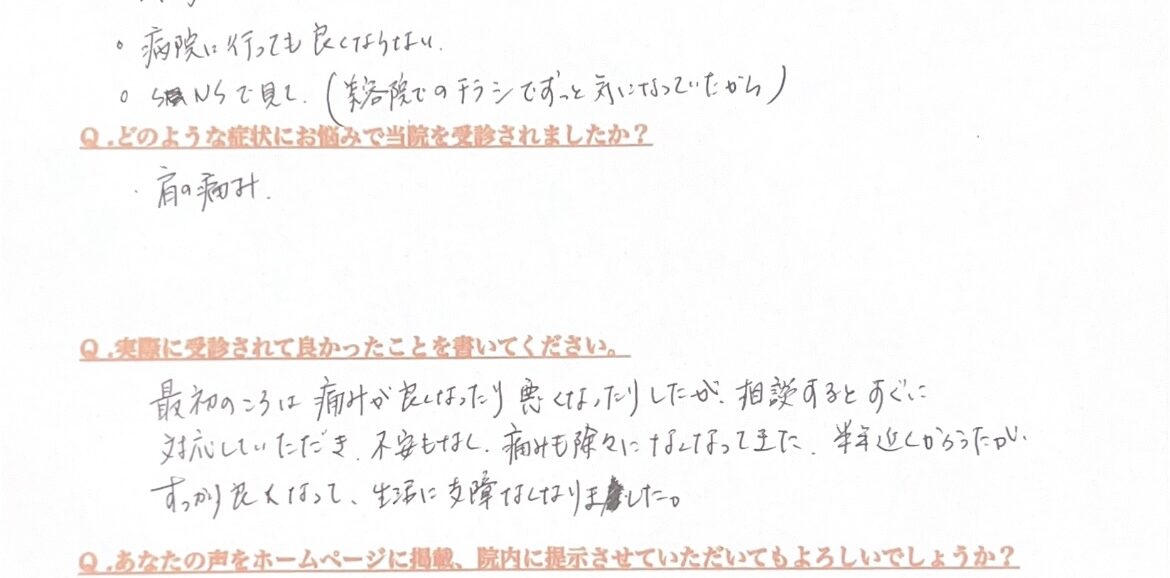 。病院に行っても良くならない.
。SNSで見て.(美容院でのチラシでずっと気になっていたから)
Q.どのような症状にお悩みで当院を受診されましたか？
・肩の痛み.
Q.実際に受診されて良かったことを書いてください。
最初のころは痛みが良くなったり悪くなったりしたが、相談するとすぐに
対応していただき、不安もなく、痛みも除々になくなってきた. 半年近くかかったが、
すっかり良くなって、生活に支障なくなりました。
Q.あなたの声をホームページに掲載、院内に提示させていただいてもよろしいでしょうか？